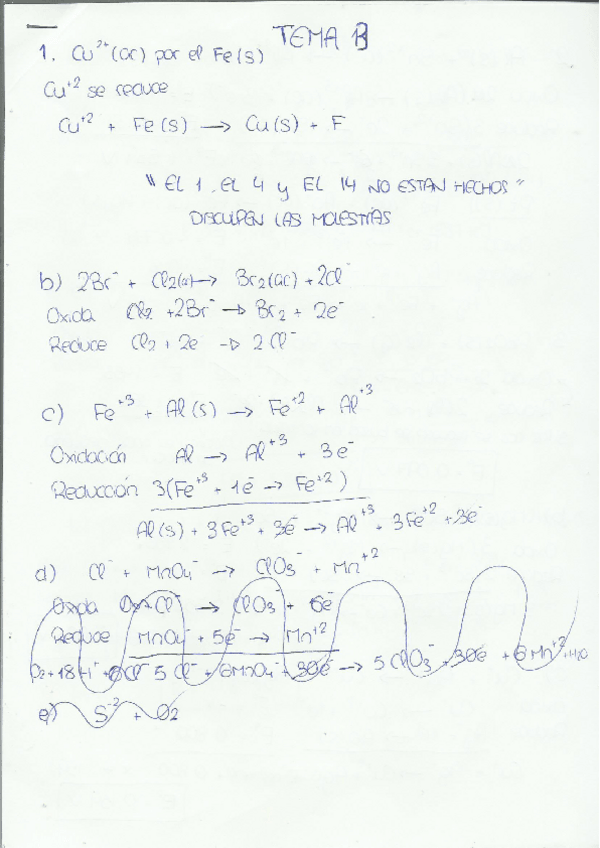 TEMA B
1. Cu²⁺(ac) por el Fe(s)
Cu⁺² se reduce
Cu⁺² + Fe(s) → Cu(s) + F
"EL 1, EL 4 y EL 14 NO ESTAN HECHOS"
DISCULPEN LAS MOLESTIAS
b) 2Br⁻ + Cl₂(a) → Br₂(ac) + 2Cl⁻
Oxida Cl₂ + 2Br⁻ → Br₂ + 2e⁻
Reduce Cl₂ + 2e⁻ → 2Cl⁻
c) Fe⁺³ + Al(s) → Fe⁺² + Al⁺³
Oxidación Al → Al⁺³ + 3e⁻
Reducción 3(Fe⁺³ + 1e⁻ → Fe⁺²)
Al(s) + 3Fe⁺³ + 3e⁻ → Al⁺³ + 3Fe⁺² + 3e⁻
d) Cl⁻ + MnO₄⁻ → ClO₃⁻ + Mn⁺²
Oxida Cl⁻ → ClO₃⁻ + 6e⁻
Reduce MnO₄⁻ + 5e⁻ → Mn⁺²
+ 18H⁺ 5Cl⁻ + 6MnO₄⁻ + 30e⁻ → 5ClO₃⁻ + 30e⁻ + 6Mn⁺² + H₂O
e) S⁻² + O₂